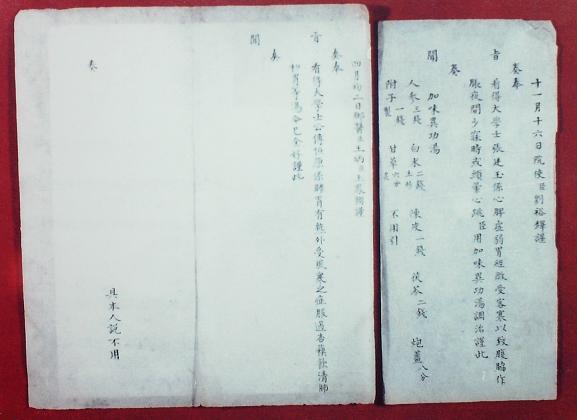 十一月十六日院使臣劉裕鐸謹
奏奉
旨看得大學士張廷玉係心脾虛弱胃經微受客寒以致腹脇作
脹夜間少寐時或頭暈心跳臣用加味異功湯調治謹此
奏
聞
加味異功湯
人參三錢 白朮二錢土炒 陳皮一錢 茯苓二錢 炮薑八分
附子一錢製 甘草六分炙 不用引
四月初二日御醫臣王炳臣王謹
奏奉
旨看得大學士公傅恒原係肺胃有熱外受風寒之症服過杏蘇飲清肺
和胃等湯今已全好謹此
奏
聞
奏
具本人說不用